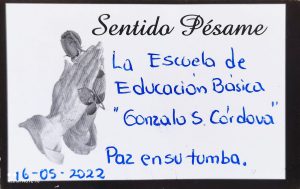 Sentido Pésame
La Escuela de
Educación Básica
"Gonzalo S. Córdova"
Paz en su tumba.
16-05-2022